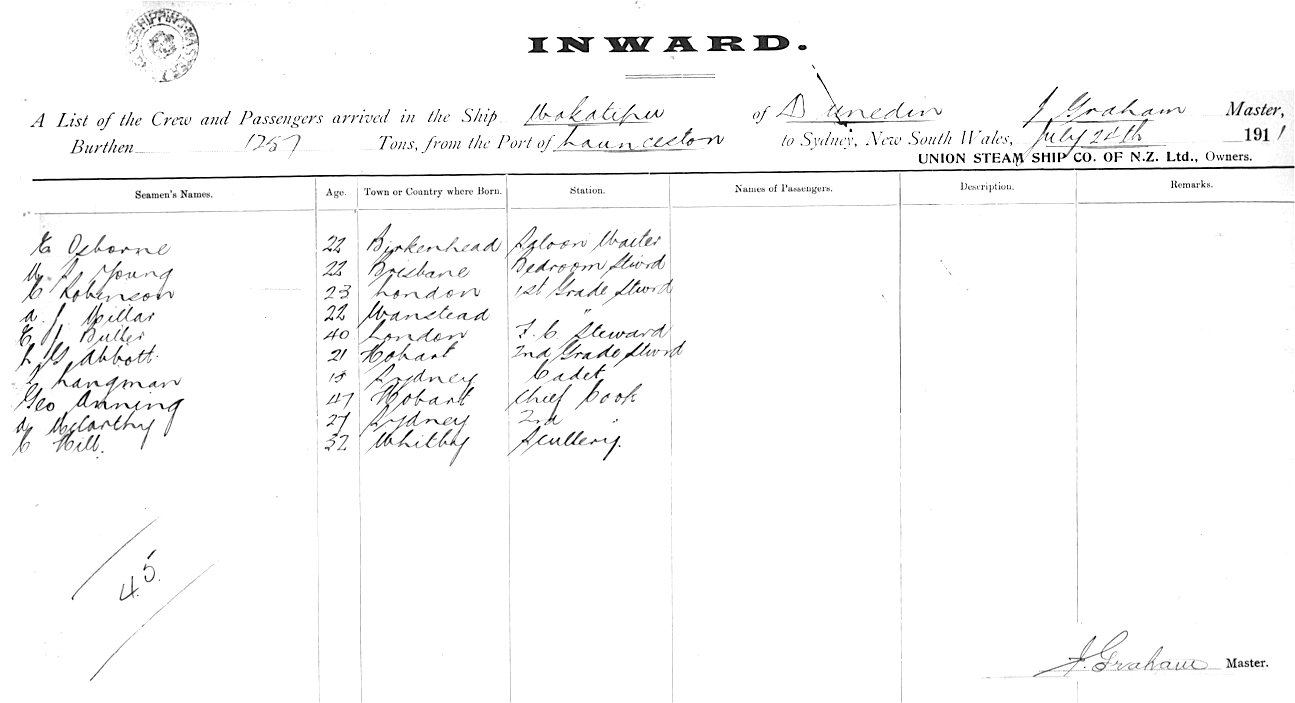 SHIPPING MASTER
INWARD.
A List of the Crew and Passengers arrived in the Ship Wakatipu of Dunedin J Graham Master,
Burthen 1257 Tons, from the Port of Launceston to Sydney, New South Wales, July 24th 1911
UNION STEAM SHIP CO. OF N.Z. Ltd., Owners.
Seamen's Names. Age. Town or Country where Born. Station. Names of Passengers. Description. Remarks.
E Osborne 22 Birkenhead Saloon Waiter
W S Young 22 Brisbane Bedroom Stwrd
C Robinson 23 London 1st Grade Stwrd
A. J. Millar 22 Wanstead "
E J Butler 40 London F. C Steward
L G Abbott. 21 Hobart 2nd Grade Stwrd
Langman 18 Sydney Cadet
Geo Anning 47 Hobart Chief Cook
McCarthy 27 Sydney 2nd "
C Hill. 32 Whitby Scullery.
45.
J. Graham Master.